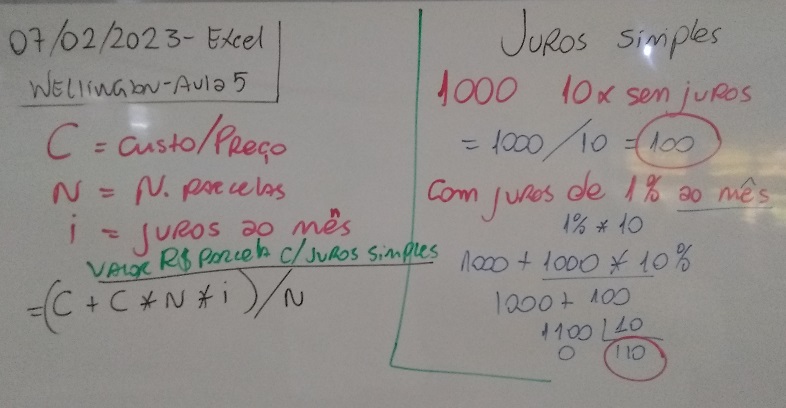 07/02/2023- Excel
Wellington-Aula 5
C = Custo/Preço
N = N. parcelas
i = juros ao mês
Valor R$ Parcela c/Juros simples
=(C + C * N * i)/N
Juros simples
1000 10x sem juros
= 1000/10 = 100
Com juros de 1% ao mês
1% * 10
1000 + 1000 * 10%
1000 + 100
1100 10
0 110